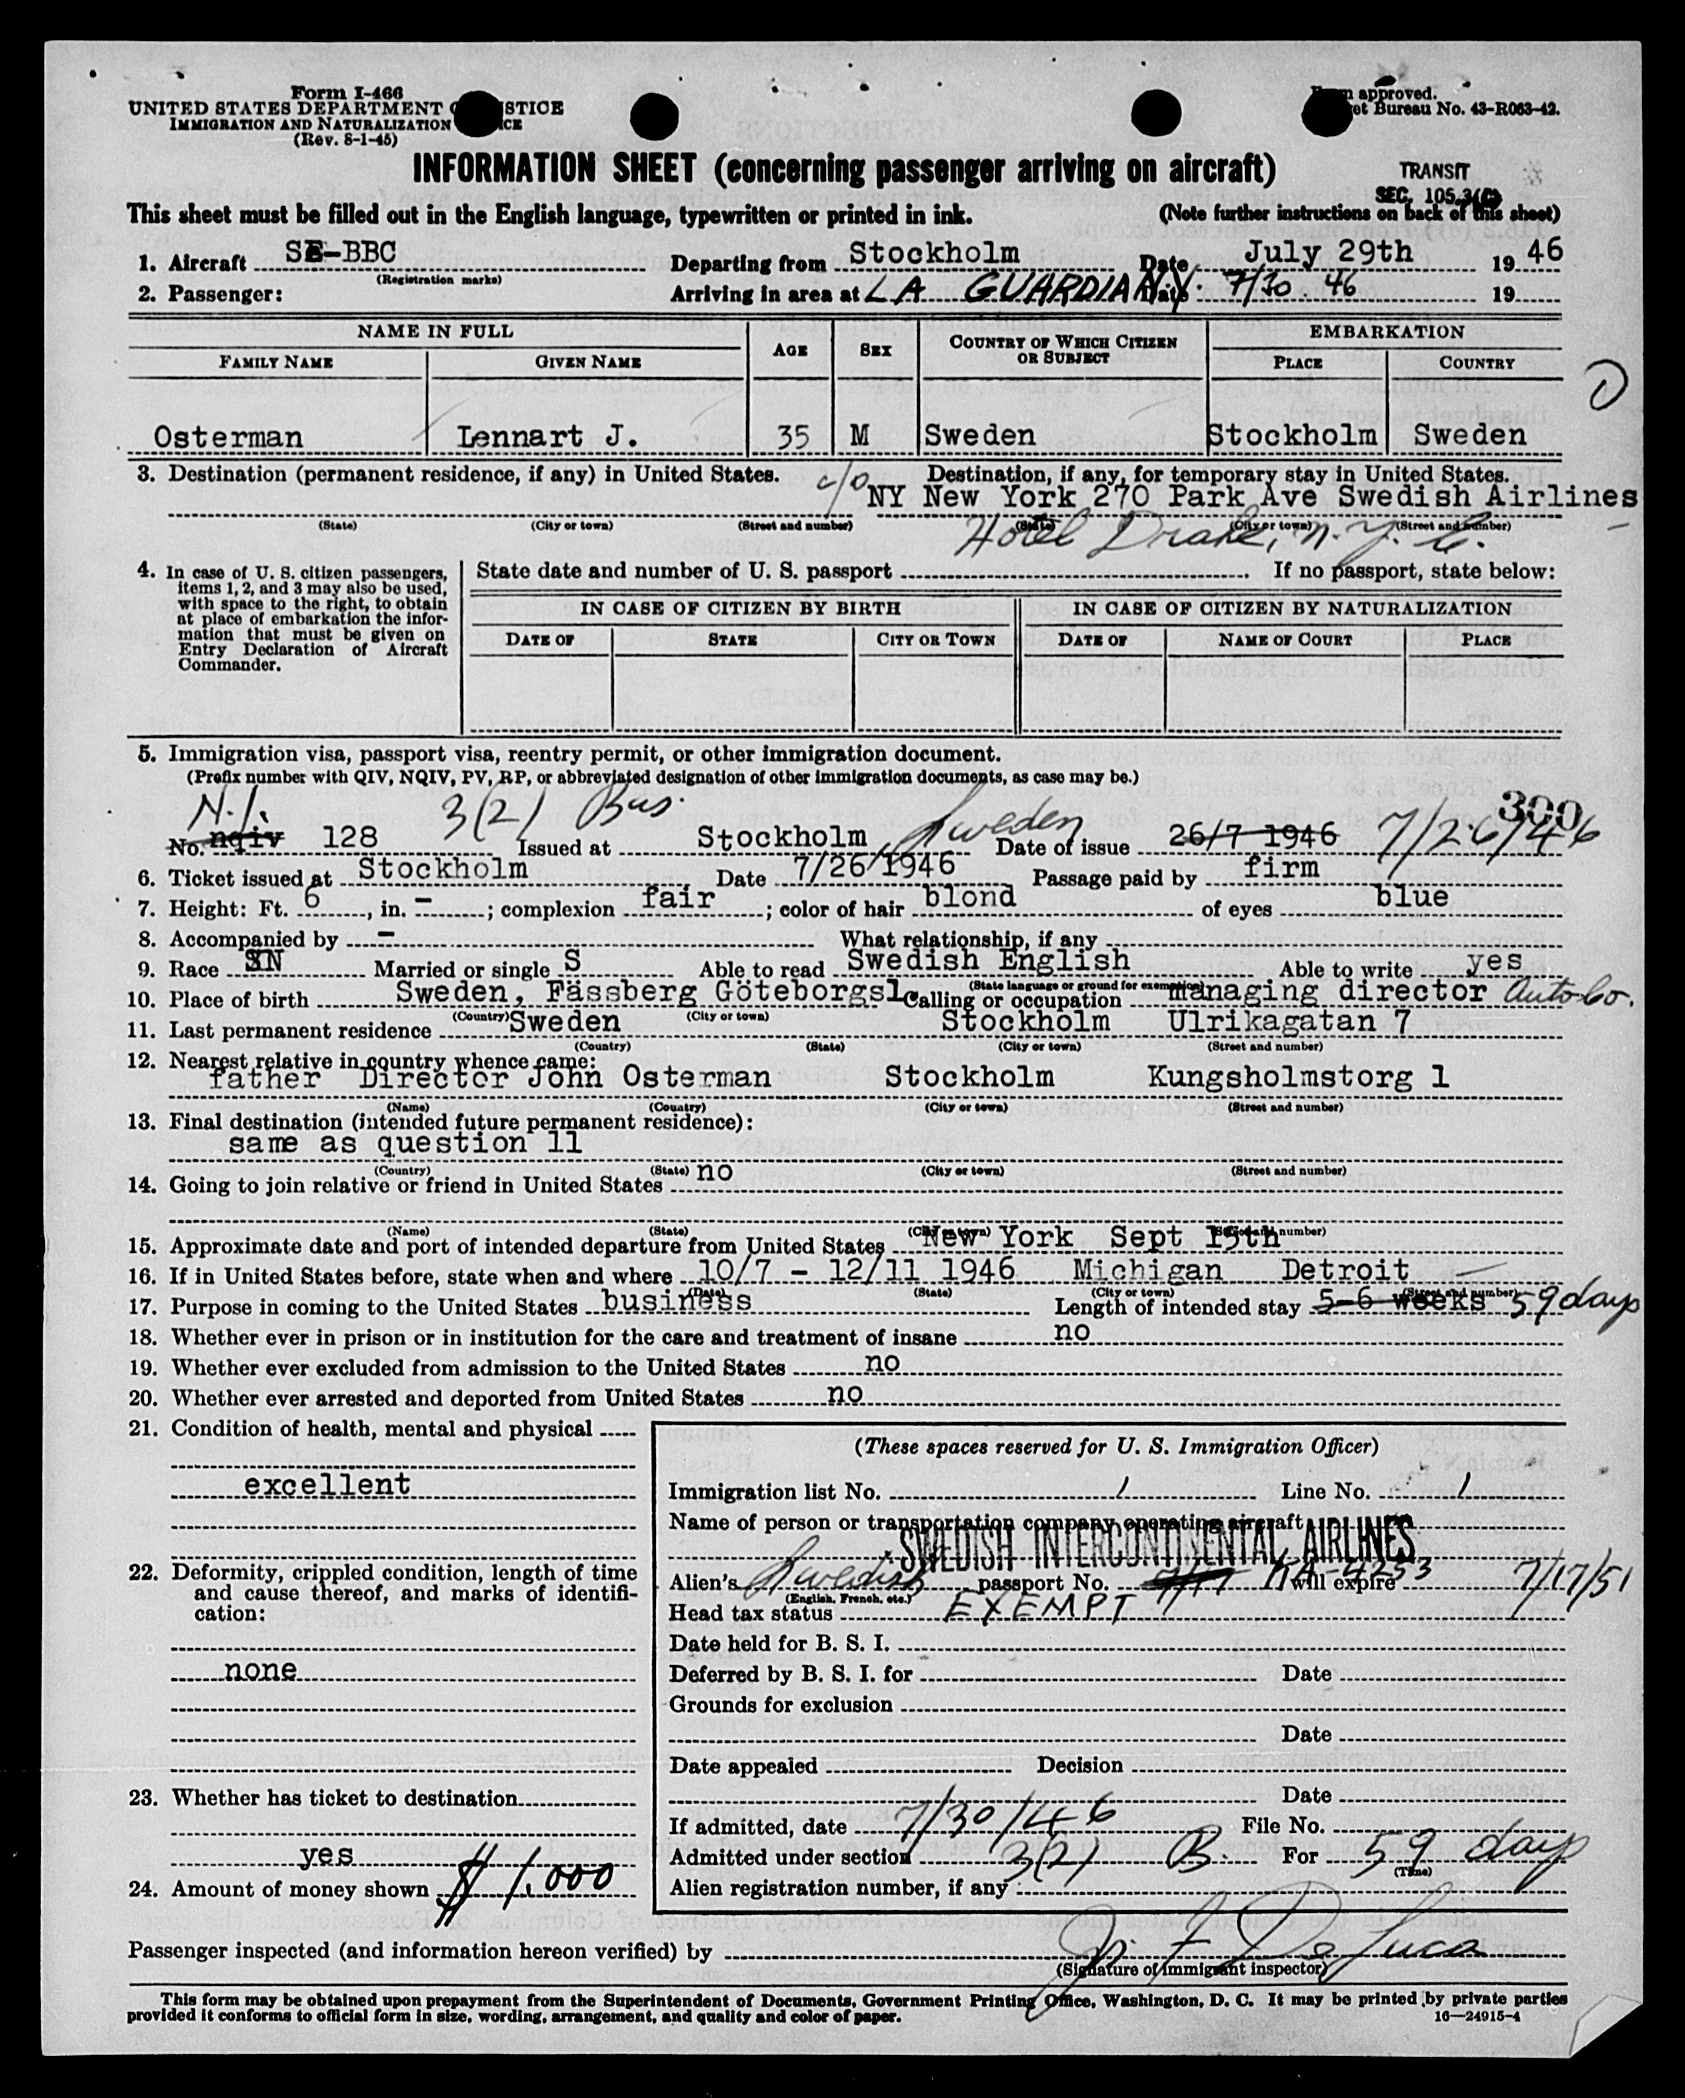 Form I-466
UNITED STATES DEPARTMENT OF JUSTICE
IMMIGRATION AND NATURALIZATION SERVICE
(Rev. 8-1-45)
Form approved.
Budget Bureau No. 43-R063-42.
INFORMATION SHEET (concerning passenger arriving on aircraft)
TRANSIT
SEC. 105.3(C)
This sheet must be filled out in the English language, typewritten or printed in ink.
(Note further instructions on back of this sheet)
1. Aircraft SE-BBC Departing from Stockholm Date July 29th 1946
(Registration marks)
2. Passenger: Arriving in area at LA GUARDIA N.Y. Date 7/30 46 19
NAME IN FULL AGE SEX COUNTRY OF WHICH CITIZEN OR SUBJECT EMBARKATION
FAMILY NAME GIVEN NAME PLACE COUNTRY
Osterman Lennart J. 35 M Sweden Stockholm Sweden
3. Destination (permanent residence, if any) in United States. Destination, if any, for temporary stay in United States.
c/o NY New York 270 Park Ave Swedish Airlines
(State) (City or town) (Street and number) (State) (City or town) (Street and number)
Hotel Drake, N.Y.C.
4. In case of U. S. citizen passengers, items 1, 2, and 3 may also be used, with space to the right, to obtain at place of embarkation the information that must be given on Entry Declaration of Aircraft Commander.
State date and number of U. S. passport If no passport, state below:
IN CASE OF CITIZEN BY BIRTH IN CASE OF CITIZEN BY NATURALIZATION
DATE OF STATE CITY OR TOWN DATE OF NAME OF COURT PLACE
5. Immigration visa, passport visa, reentry permit, or other immigration document.
(Prefix number with QIV, NQIV, PV, RP, or abbreviated designation of other immigration documents, as case may be.)
N.I. 3(2) Bus. 300
No. nqiv 128 Issued at Stockholm, Sweden Date of issue 26/7 1946 7/26/46
6. Ticket issued at Stockholm Date 7/26/1946 Passage paid by firm
7. Height: Ft. 6, in. -; complexion fair; color of hair blond of eyes blue
8. Accompanied by - What relationship, if any
9. Race SN Married or single S Able to read Swedish English Able to write yes
(State language or ground for exemption)
10. Place of birth Sweden, Fässberg Göteborgsl. Calling or occupation managing director Auto Co.
(Country) (City or town)
11. Last permanent residence Sweden Stockholm Ulrikagatan 7
(Country) (State) (City or town) (Street and number)
12. Nearest relative in country whence came:
father Director John Osterman Stockholm Kungsholmstorg 1
(Name) (Country) (City or town) (Street and number)
13. Final destination (intended future permanent residence):
same as question 11
(Country) (State) (City or town) (Street and number)
14. Going to join relative or friend in United States no
(Name) (State) (City or town) (Street and number)
15. Approximate date and port of intended departure from United States New York Sept 15th
16. If in United States before, state when and where 10/7 - 12/11 1946 Michigan Detroit
(Date) (State) (City or town) (Street and number)
17. Purpose in coming to the United States business Length of intended stay 5-6 weeks 59 days
18. Whether ever in prison or in institution for the care and treatment of insane no
19. Whether ever excluded from admission to the United States no
20. Whether ever arrested and deported from United States no
21. Condition of health, mental and physical
excellent
22. Deformity, crippled condition, length of time and cause thereof, and marks of identification:
none
23. Whether has ticket to destination
yes
24. Amount of money shown $1,000
(These spaces reserved for U. S. Immigration Officer)
Immigration list No. 1 Line No. 1
Name of person or transportation company operating aircraft
SWEDISH INTERCONTINENTAL AIRLINES
Alien's Swedish passport No. KA-4253 will expire 7/17/51
(English, French, etc.)
Head tax status EXEMPT
Date held for B. S. I.
Deferred by B. S. I. for Date
Grounds for exclusion
Date
Date appealed Decision
Date
If admitted, date 7/30/46 File No.
Admitted under section 3(2) B. For 59 days
(Time)
Alien registration number, if any
Passenger inspected (and information hereon verified) by J. F. DeLuca
(Signature of immigrant inspector)
This form may be obtained upon prepayment from the Superintendent of Documents, Government Printing Office, Washington, D. C. It may be printed by private parties
provided it conforms to official form in size, wording, arrangement, and quality and color of paper.
16—24915-4